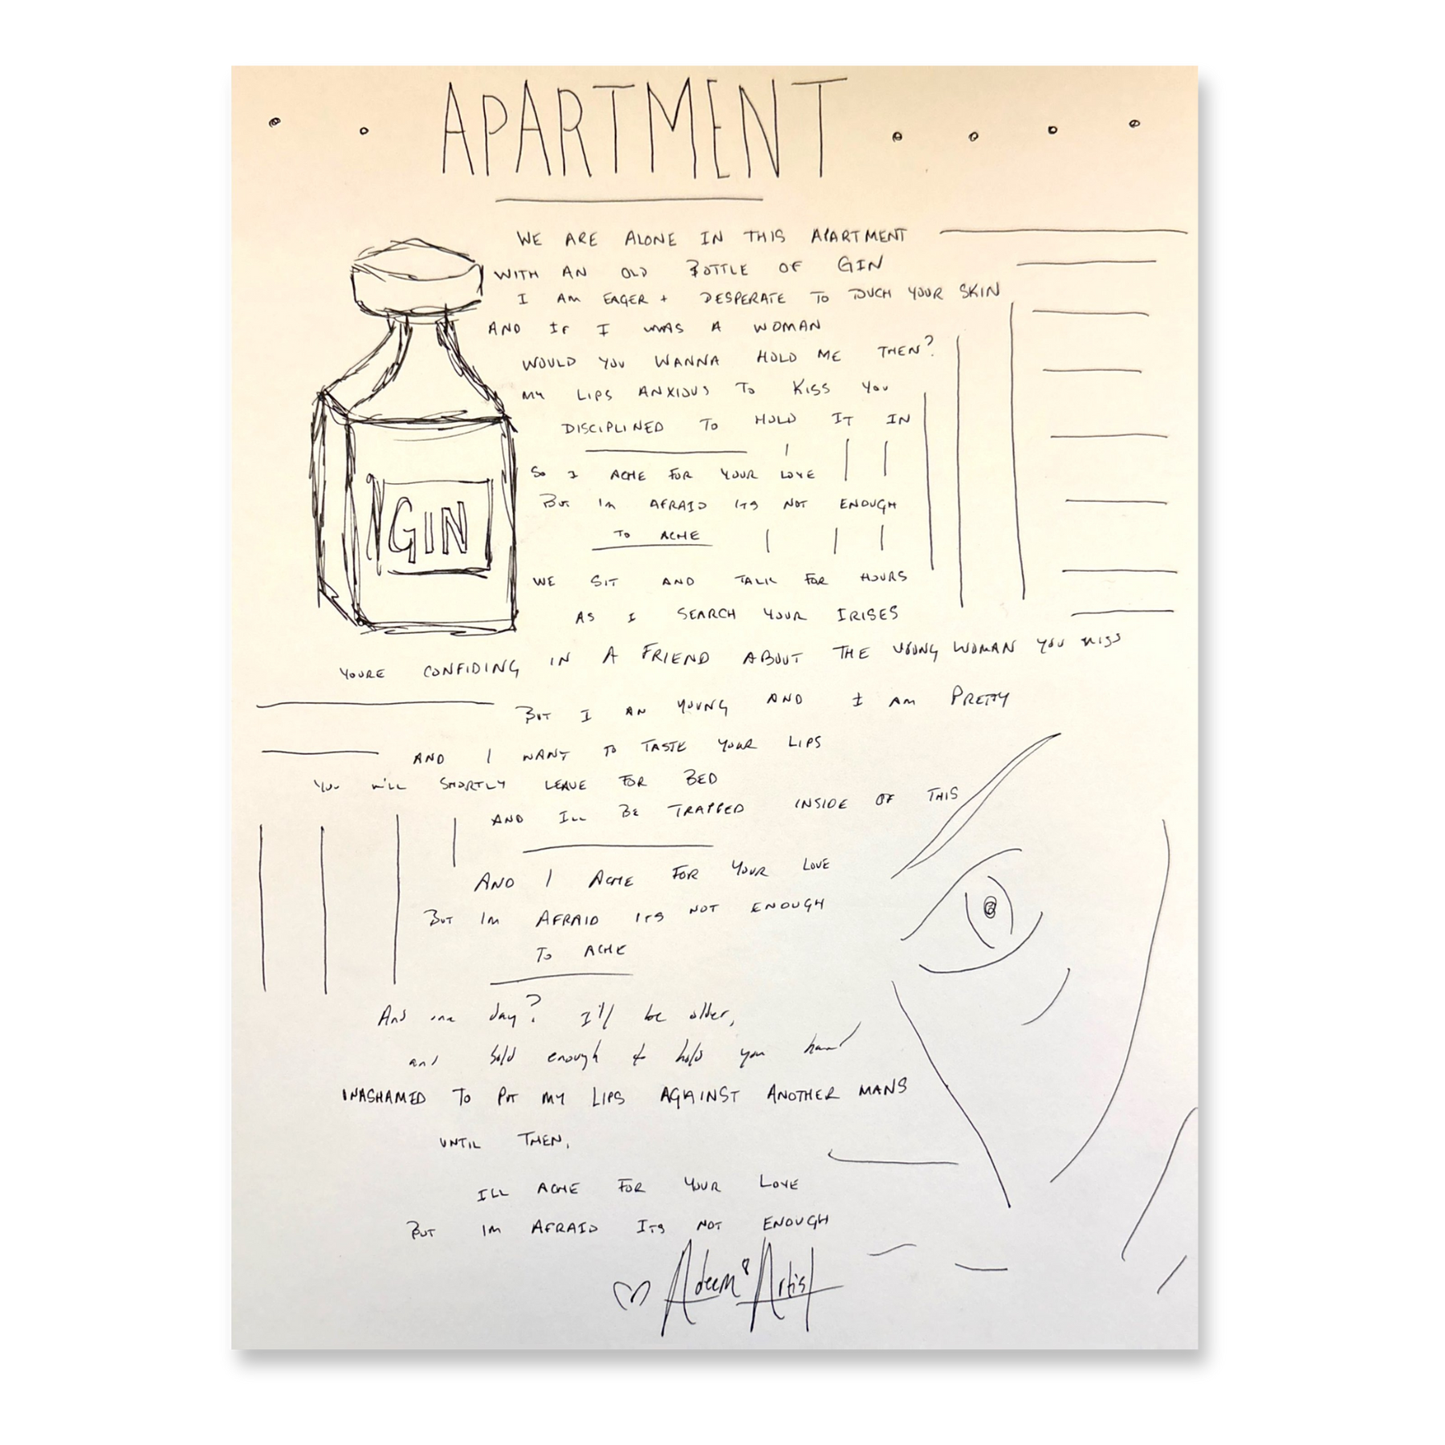 APARTMENT
WE ARE ALONE IN THIS APARTMENT
WITH AN OLD BOTTLE OF GIN
I AM EAGER + DESPERATE TO TOUCH YOUR SKIN
AND IF I WAS A WOMAN
WOULD YOU WANNA HOLD ME THEN?
MY LIPS ANXIOUS TO KISS YOU
DISCIPLINED TO HOLD IT IN
GIN
SO I ACHE FOR YOUR LOVE
BUT IM AFRAID ITS NOT ENOUGH
TO ACHE
WE SIT AND TALK FOR HOURS
AS I SEARCH YOUR IRISES
YOURE CONFIDING IN A FRIEND ABOUT THE YOUNG WOMAN YOU MISS
BUT I AM YOUNG AND I AM PRETTY
AND I WANT TO TASTE YOUR LIPS
YOU WILL SHORTLY LEAVE FOR BED
AND ILL BE TRAPPED INSIDE OF THIS
AND I ACHE FOR YOUR LOVE
BUT IM AFRAID ITS NOT ENOUGH
TO ACHE
And one day? I'll be older,
and bold enough to hold your hand
UNASHAMED TO PUT MY LIPS AGAINST ANOTHER MANS
UNTIL THEN,
ILL ACHE FOR YOUR LOVE
BUT IM AFRAID ITS NOT ENOUGH
Adeem Artist